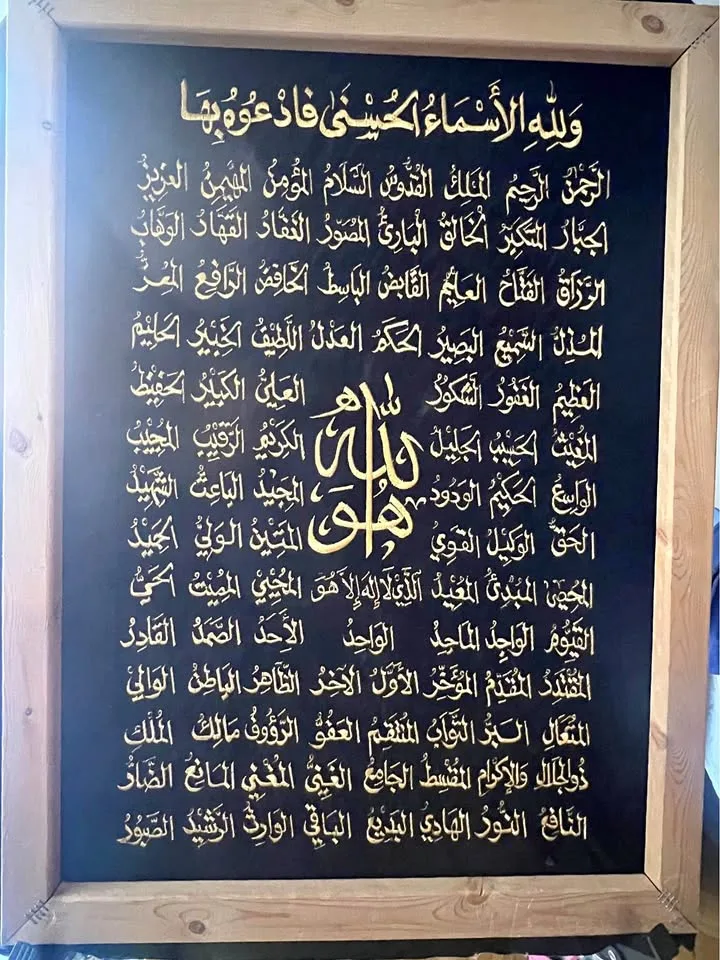 وَلِلَّهِ الأَسْمَاءُ الحُسْنَى فَادْعُوهُ بِهَا
الرَّحْمٰنُ الرَّحِيمُ المَلِكُ القُدُّوسُ السَّلَامُ المُؤْمِنُ المُهَيْمِنُ العَزِيزُ
الجَبَّارُ المُتَكَبِّرُ الخَالِقُ البَارِئُ المُصَوِّرُ الغَفَّارُ القَهَّارُ الوَهَّابُ
الرَّزَّاقُ الفَتَّاحُ العَلِيمُ القَابِضُ البَاسِطُ الخَافِضُ الرَّافِعُ المُعِزُّ
المُذِلُّ السَّمِيعُ البَصِيرُ الحَكَمُ العَدْلُ اللَّطِيفُ الخَبِيرُ الحَلِيمُ
العَظِيمُ الغَفُورُ الشَّكُورُ العَلِيُّ الكَبِيرُ الحَفِيظُ
المُغِيثُ الحَسِيبُ الجَلِيلُ الكَرِيمُ الرَّقِيبُ المُجِيبُ
الله
الوَاسِعُ الحَكِيمُ الوَدُودُ المَجِيدُ البَاعِثُ الشَّهِيدُ
هُوَ
الحَقُّ الوَكِيلُ القَوِيُّ المَتِينُ الوَلِيُّ الحَمِيدُ
المُحْصِي المُبْدِئُ المُعِيدُ الَّذِي لَا إِلٰهَ إِلَّا هُوَ المُحْيِي المُمِيتُ الحَيُّ
القَيُّومُ الوَاجِدُ المَاجِدُ الوَاحِدُ الأَحَدُ الصَّمَدُ القَادِرُ
المُقْتَدِرُ المُقَدِّمُ المُؤَخِّرُ الأَوَّلُ الآخِرُ الظَّاهِرُ البَاطِنُ الوَالِي
المُتَعَالِ البَرُّ التَّوَّابُ المُنْتَقِمُ العَفُوُّ الرَّؤُوفُ مَالِكُ المُلْكِ
ذُو الجَلَالِ وَالإِكْرَامِ المُقْسِطُ الجَامِعُ الغَنِيُّ المُغْنِي المَانِعُ الضَّارُّ
النَّافِعُ النُّورُ الهَادِي البَدِيعُ البَاقِي الوَارِثُ الرَّشِيدُ الصَّبُورُ